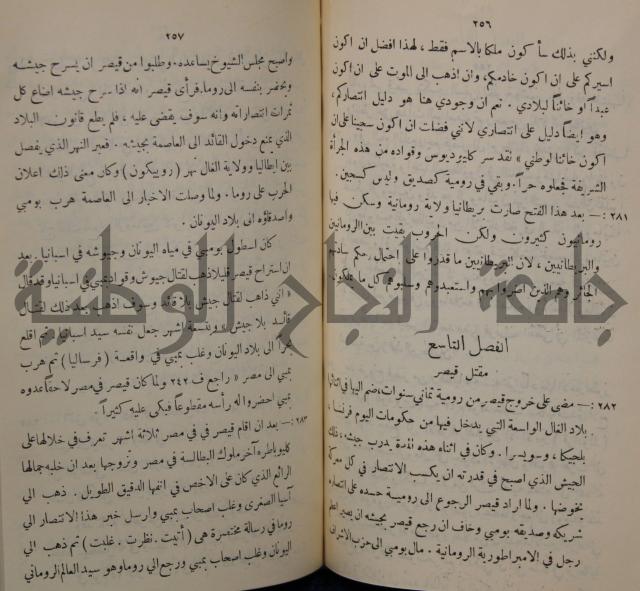 ٢٥٦
ولكنني بذلك سأكون ملكا بالاسم فقط ، لهذا افضل ان اكون
اسيركم على ان اكون خادمكم، وان اذهب الى الموت على ان اكون
عبداً او خائناً لبلادي . نعم ان وجودي هنا هو دليل انتصاركم،
وهو ايضاً دليل على انتصاري لانني فضلت ان اكون سجينا على ان
اكون خائنا لوطني » لقد سر كلوديوس وقواده من هذه الجرأة
الشريفة فجعلوه حراً. وبقي في رومية كصديق وليس كسجين .
٢٨١ :— بعد هذا الفتح صارت بريطانيا ولاية رومانية وسكن فيها
رومانيون كثيرون ولكن الحروب بقيت بين الرومانيين
والبريطانيين ، لان البريطانيين ما قدروا على احتمال حكم سادتهم
الجائر وهم الذين واستعبدوهم وسلبوهم كل ما يملكون.
الفصل التاسع
مقتل قيصر
٢٨٢ :— مضى على خروج قيصر من رومية ثماني سنوات، ضم اليها في اثنائها
بلاد الغال الواسعة التي يدخل فيها من حكومات اليوم فرنسا ،
بلجيكا ، وسويسرا . وكان في اثناء هذه المدة يدرب جيشه ، ذلك
الجيش الذي اصبح في قدرته ان يكسب الانتصار في كل معركة
يخوضها . ولما اراد قيصر الرجوع الى رومية حسده على انتصاره
شريكه وصديقه بومبي وخاف ان رجع قيصر بجيشه ان يصير اعظم
رجل في الامبراطورية الرومانية . مال بومبي الى حزب الاشراف
٢٥٧
واصبح مجلس الشيوخ يساعده. وطلبوا من قيصر ان يسرح جيشه
ويحضر بنفسه الى روما. فرأى قيصر انه اذا سرح جيشه اضاع كل
ثمرات انتصاراته وانه سوف يقضى عليه ، فلم يطع قانون البلاد
الذي يمنع دخول القائد الى العاصمة بجيشه . فعبر النهر الذي يفصل
بين ايطاليا وولاية الغال نهر ( روبيكون ) وكان معنى ذلك اعلان
الحرب على روما . ولما وصلت الاخبار الى العاصمة هرب بومبي
واصدقاؤه الى بلاد اليونان .
كان اسطول بومبي في مياه اليونان وجيوشه في اسبانيا . بعد
ان استراح قيصر قليلا ذهب لقتال جيوش وقواد بمبي في اسبانيا وقد قال
« اني ذاهب لقتال جيش بلا قائد وسوف اذهب بعد ذلك لقتال
قائد بلا جيش » وبتسعة اشهر جعل نفسه سيد اسبانيا ثم اقلع
بحراً الى بلاد اليونان وغلب بمبي في واقعة ( فرساليا ) ثم هرب
بمبي الى مصر « راجع ف ٢٤٢ ولما كان قيصر في مصر لاحقا عدوه
بمبي احضروا له رأسه مقطوعاً فبكى عليه كثيراً .
٢٨٣ :— بعد ان اقام قيصر في في مصر ثلاثة اشهر تعرف في خلالها على
كليوباطره آخر ملوك البطالسة في مصر وتزوجها بعد ان خلبه جمالها
الرائع الذي كان على الاخص في انفها الدقيق الطويل . ذهب الى
آسيا الصغرى وغلب اصحاب بمبي وارسل خبر هذا الانتصار الى
روما في رسالة مختصرة هي ( أتيت . نظرت . غلبت ) ثم ذهب الى
اليونان وغلب اصحاب بمبي ورجع الى روما وهو سيد العالم الروماني
جامعة النجاح الوطنية